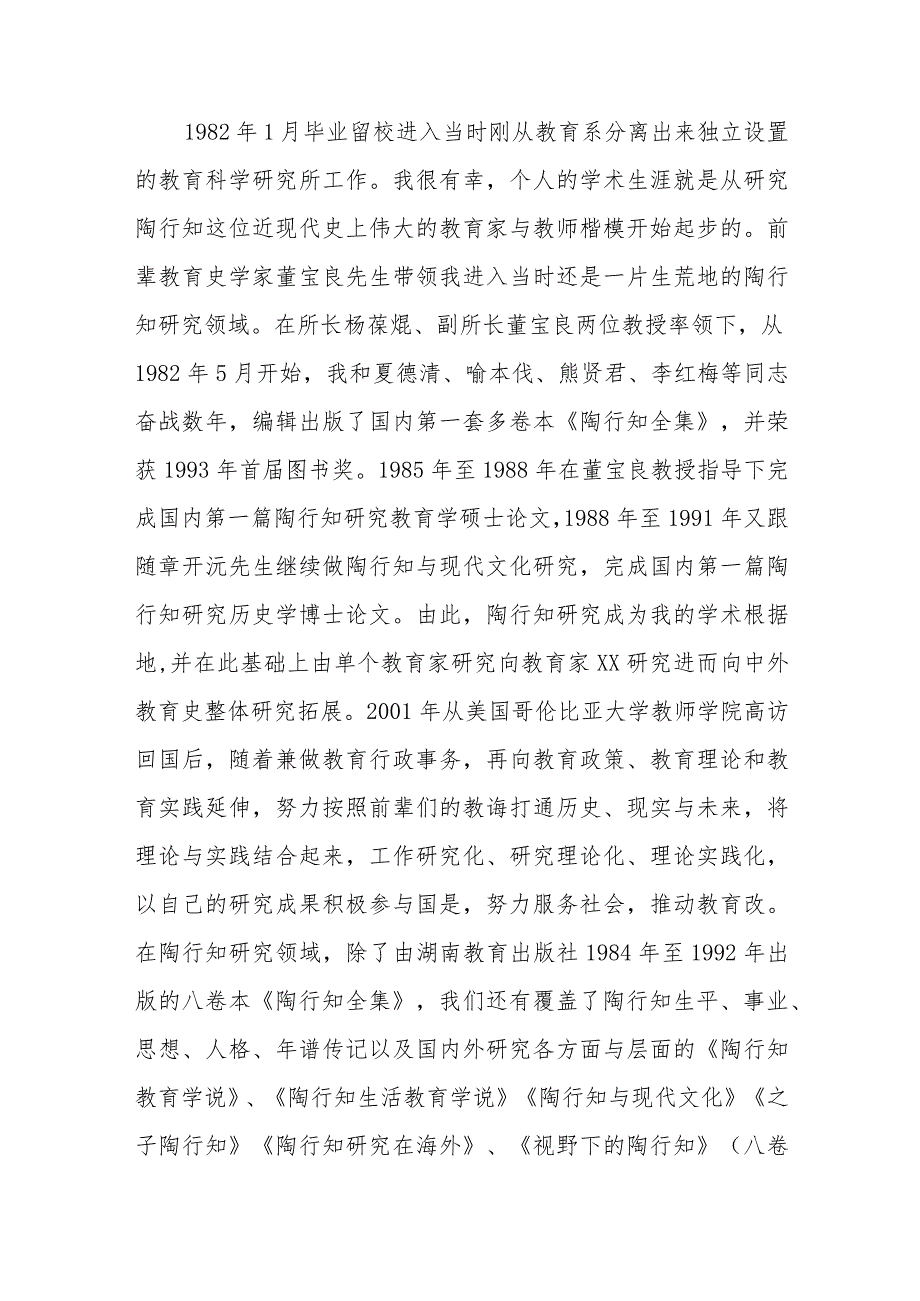 1982年1月毕业留校进入当时刚从教育系分离出来独立设置
的教育科学研究所工作。我很有幸，个人的学术生涯就是从研究
陶行知这位近现代史上伟大的教育家与教师楷模开始起步的。前
辈教育史学家董宝良先生带领我进入当时还是一片生荒地的陶行
知研究领域。在所长杨葆焜、副所长董宝良两位教授率领下，从
1982年5月开始，我和夏德清、喻本伐、熊贤君、李红梅等同志
奋战数年，编辑出版了国内第一套多卷本《陶行知全集》，并荣
获1993年首届图书奖。1985年至1988年在董宝良教授指导下完
成国内第一篇陶行知研究教育学硕士论文,1988年至1991年又跟
随章开沅先生继续做陶行知与现代文化研究，完成国内第一篇陶
行知研究历史学博士论文。由此，陶行知研究成为我的学术根据
地,并在此基础上由单个教育家研究向教育家XX研究进而向中外
教育史整体研究拓展。2001年从美国哥伦比亚大学教师学院高访
回国后，随着兼做教育行政事务，再向教育政策、教育理论和教
育实践延伸，努力按照前辈们的教诲打通历史、现实与未来，将
理论与实践结合起来，工作研究化、研究理论化、理论实践化，
以自己的研究成果积极参与国是，努力服务社会，推动教育改。
在陶行知研究领域，除了由湖南教育出版社1984年至1992年出
版的八卷本《陶行知全集》，我们还有覆盖了陶行知生平、事业、
思想、人格、年谱传记以及国内外研究各方面与层面的《陶行知
教育学说》、《陶行知生活教育学说》《陶行知与现代文化》《之
子陶行知》《陶行知研究在海外》、《视野下的陶行知》（八卷